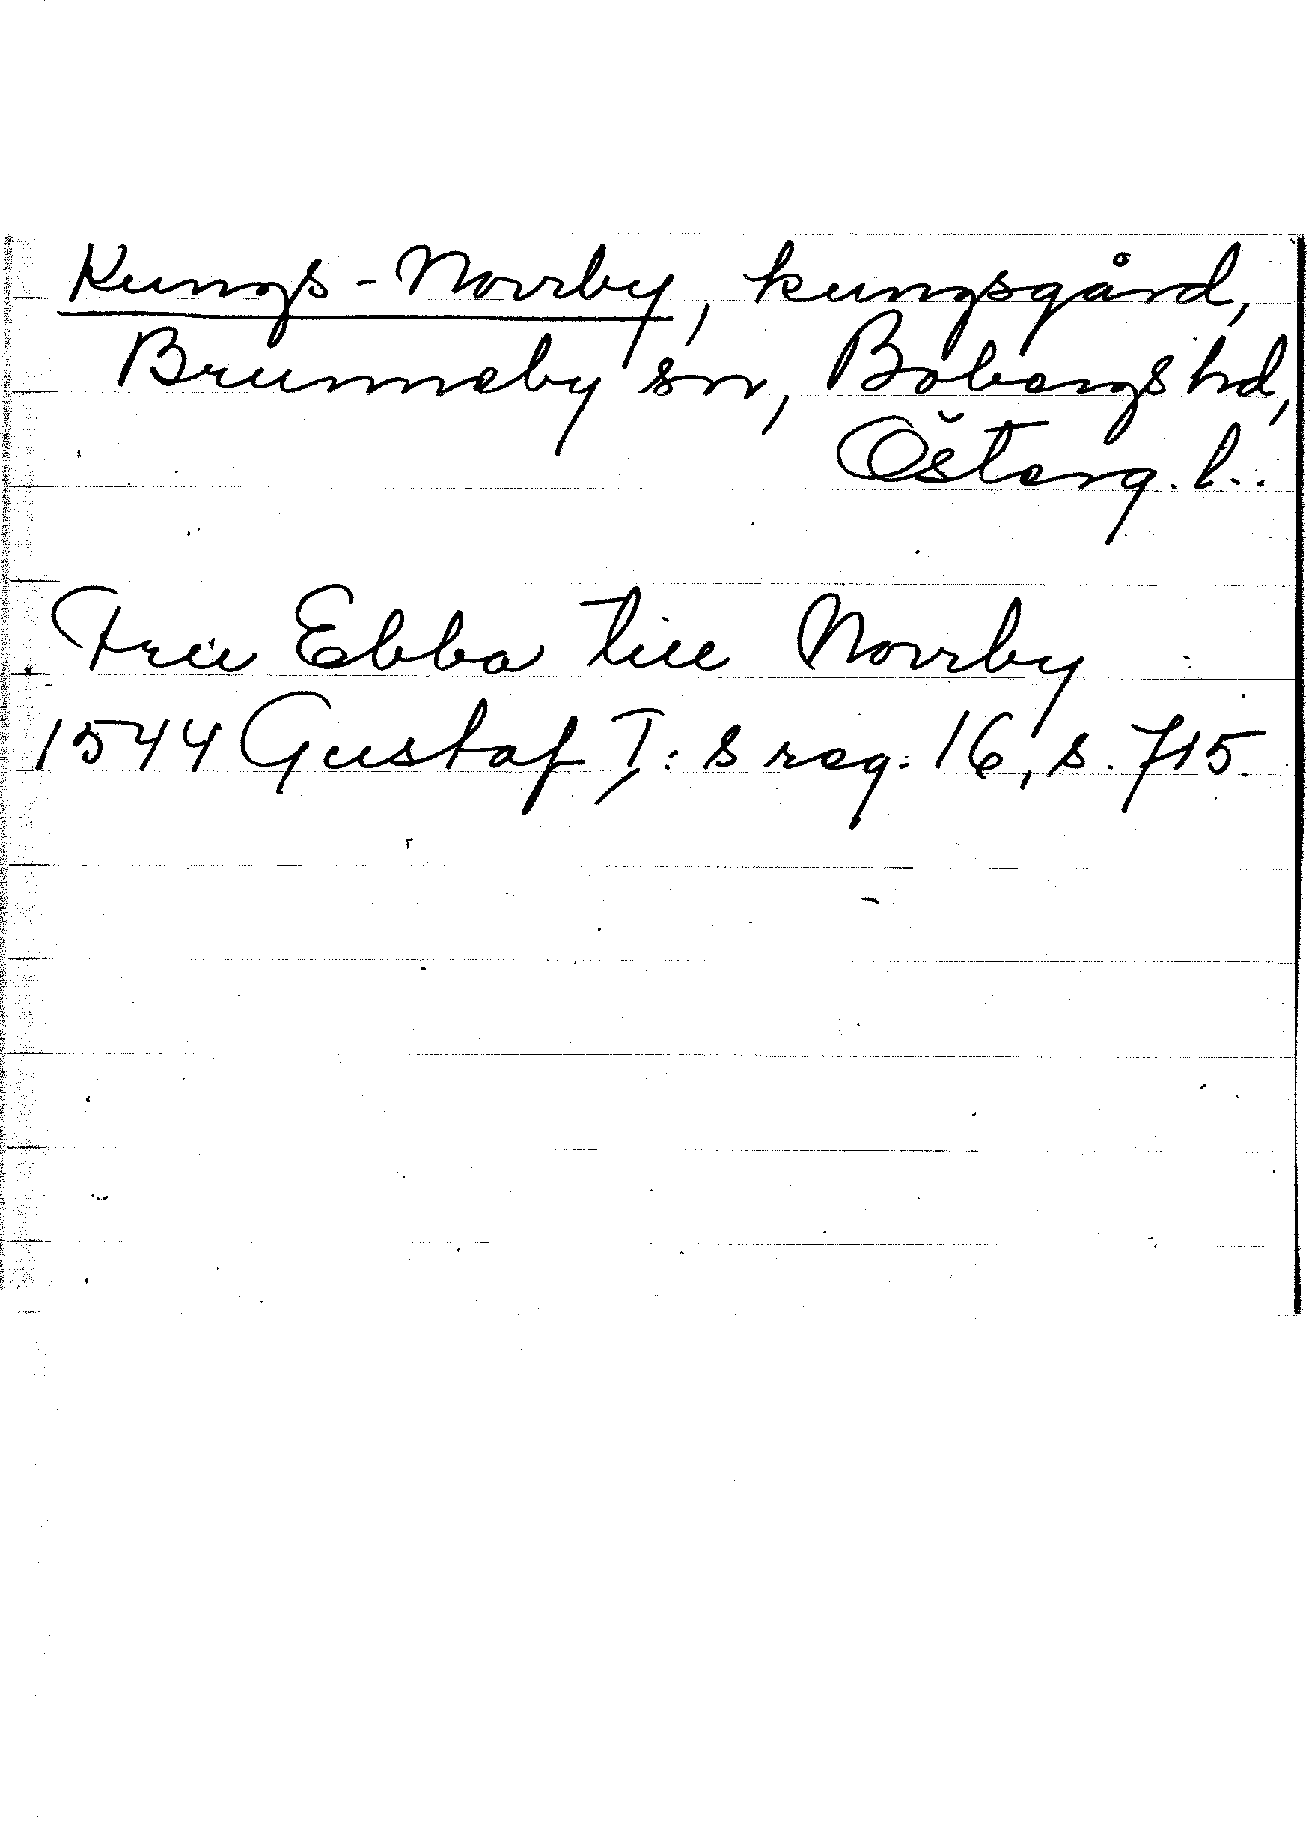 Kungs-Norrby, kungsgård,
Brunneby sn, Bobergs hd,
Österg. l..
Fru Ebba till Norrby
1544 Gustaf I:s reg. 16, s. 715